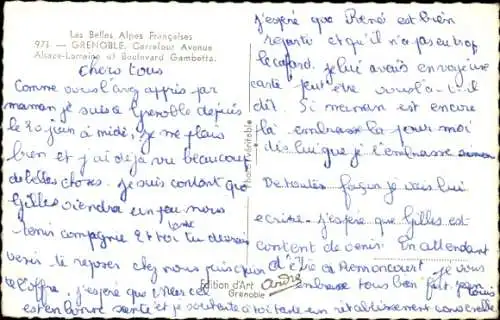 Les Belles Alpes Françaises
973. — GRENOBLE. Carrefour Avenue
Alsace-Lorraine et Boulevard Gambetta.
Chers tous
Comme vous l'avez appris par
maman je suis à Grenoble depuis
le 20 juin à midi, je me plais
bien et j'ai déjà vu beaucoup
de belles choses. Je suis content que
Gilles viendra un peu nous
tenir compagnie Et toi tu devrais
tante
venir te reposer chez nous puisque
le coffre. J'espère que
est en bonne santé et je souhaite à toi tante un rétablissement
j'espère que René est bien
reparti et qu'il n'a pas eu trop
le cafard. Je lui avais envoyé une
carte peut être vous l'a-t-il
dit Si maman est encore
là embrasse la pour moi
dis lui que je l'embrasse
De toutes façon je vais lui
écrire. J'espère que Gilles est
content de venir. En attendant
à Remoncourt je vous
embrasse tous bien fort.
André
Véritable
Édition d'Art
Grenoble